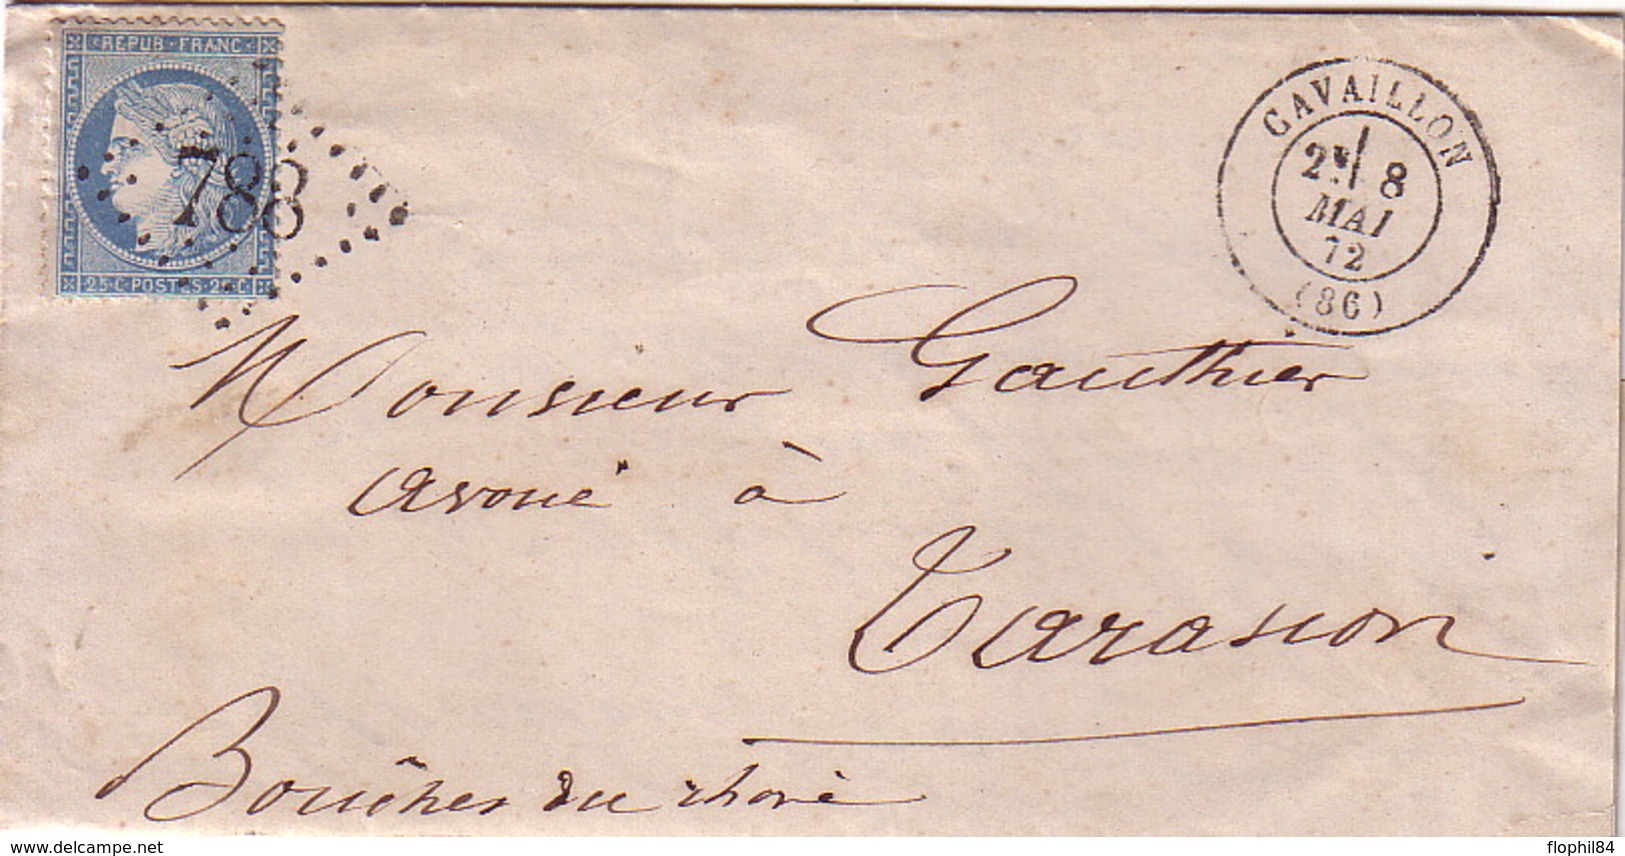 REPUB·FRANC
788
25·C·POSTES·25·C
CAVAILLON
2E 8
MAI
72
(86)
Monsieur Gauthier
avoué à
Tarascon
Bouches du rhone
delcampe.net
flophil84